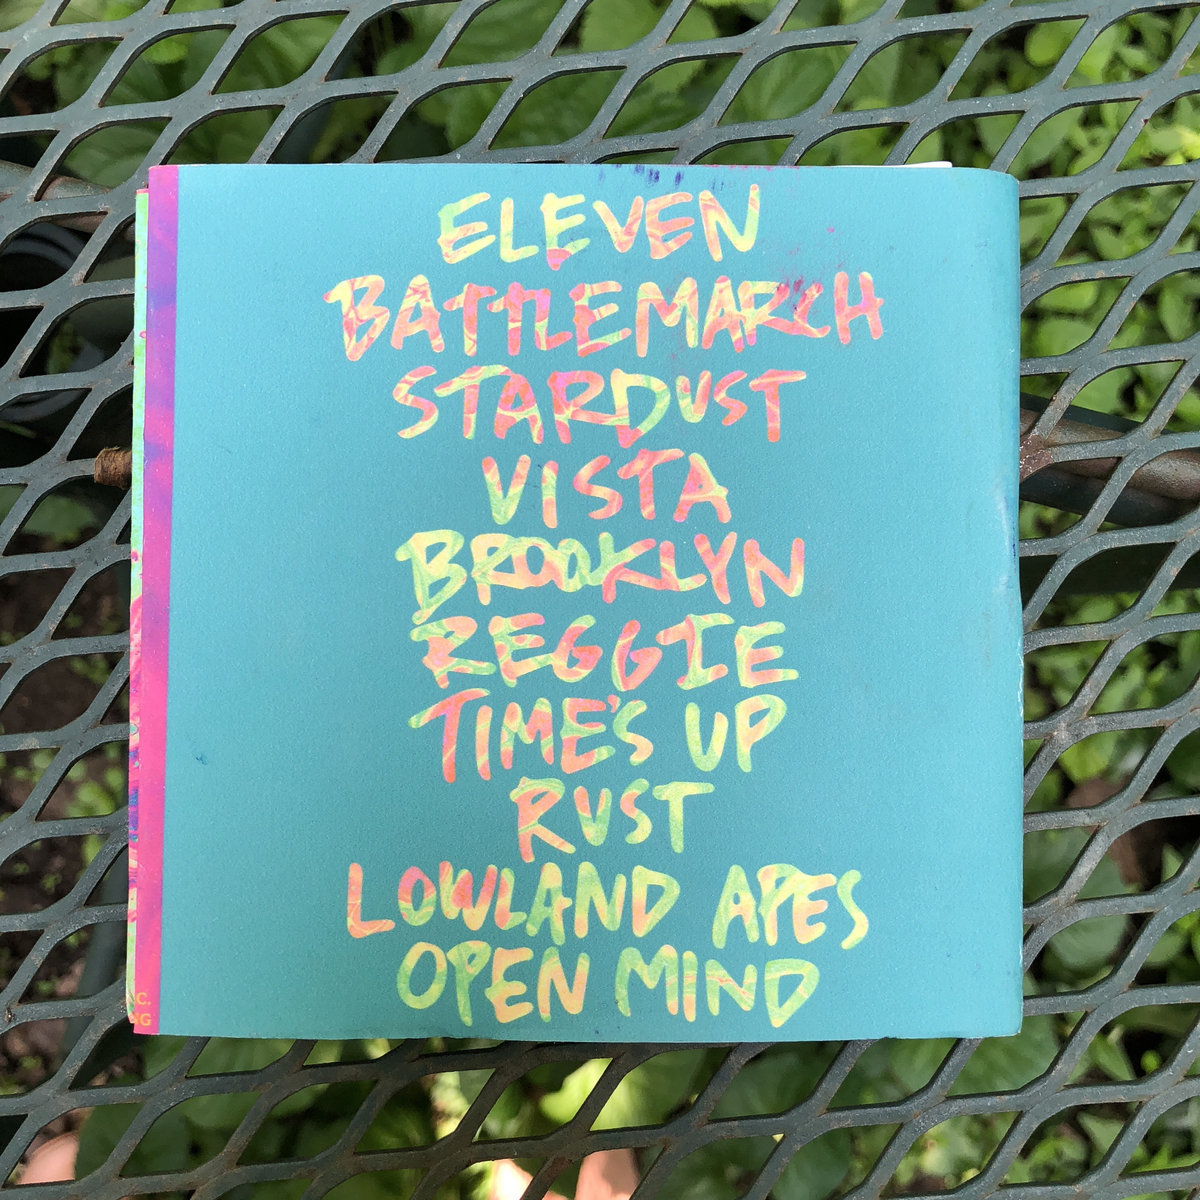 ELEVEN
BATTLEMARCH
STARDUST
VISTA
BROOKLYN
REGGIE
TIME'S UP
RUST
LOWLAND APES
OPEN MIND
C.